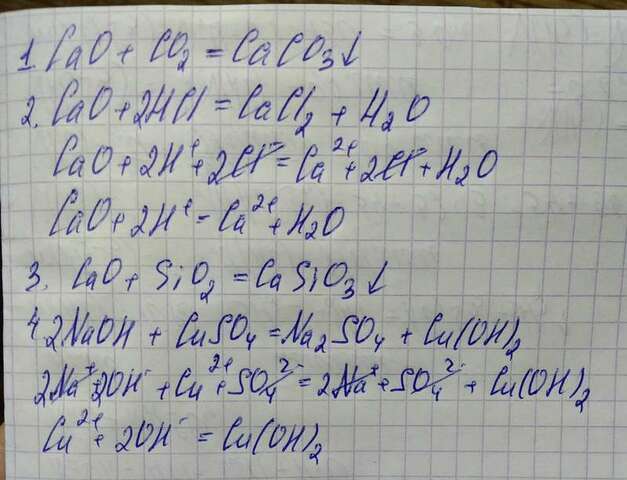 1. CaO + CO₂ = CaCO₃↓
2. CaO + 2HCl = CaCl₂ + H₂O
CaO + 2H⁺ + 2Cl⁻ = Ca²⁺ + 2Cl⁻ + H₂O
CaO + 2H⁺ = Ca²⁺ + H₂O
3. CaO + SiO₂ = CaSiO₃↓
4. 2NaOH + CuSO₄ = Na₂SO₄ + Cu(OH)₂
2Na⁺ + 2OH⁻ + Cu²⁺ + SO₄²⁻ = 2Na⁺ + SO₄²⁻ + Cu(OH)₂
Cu²⁺ + 2OH⁻ = Cu(OH)₂